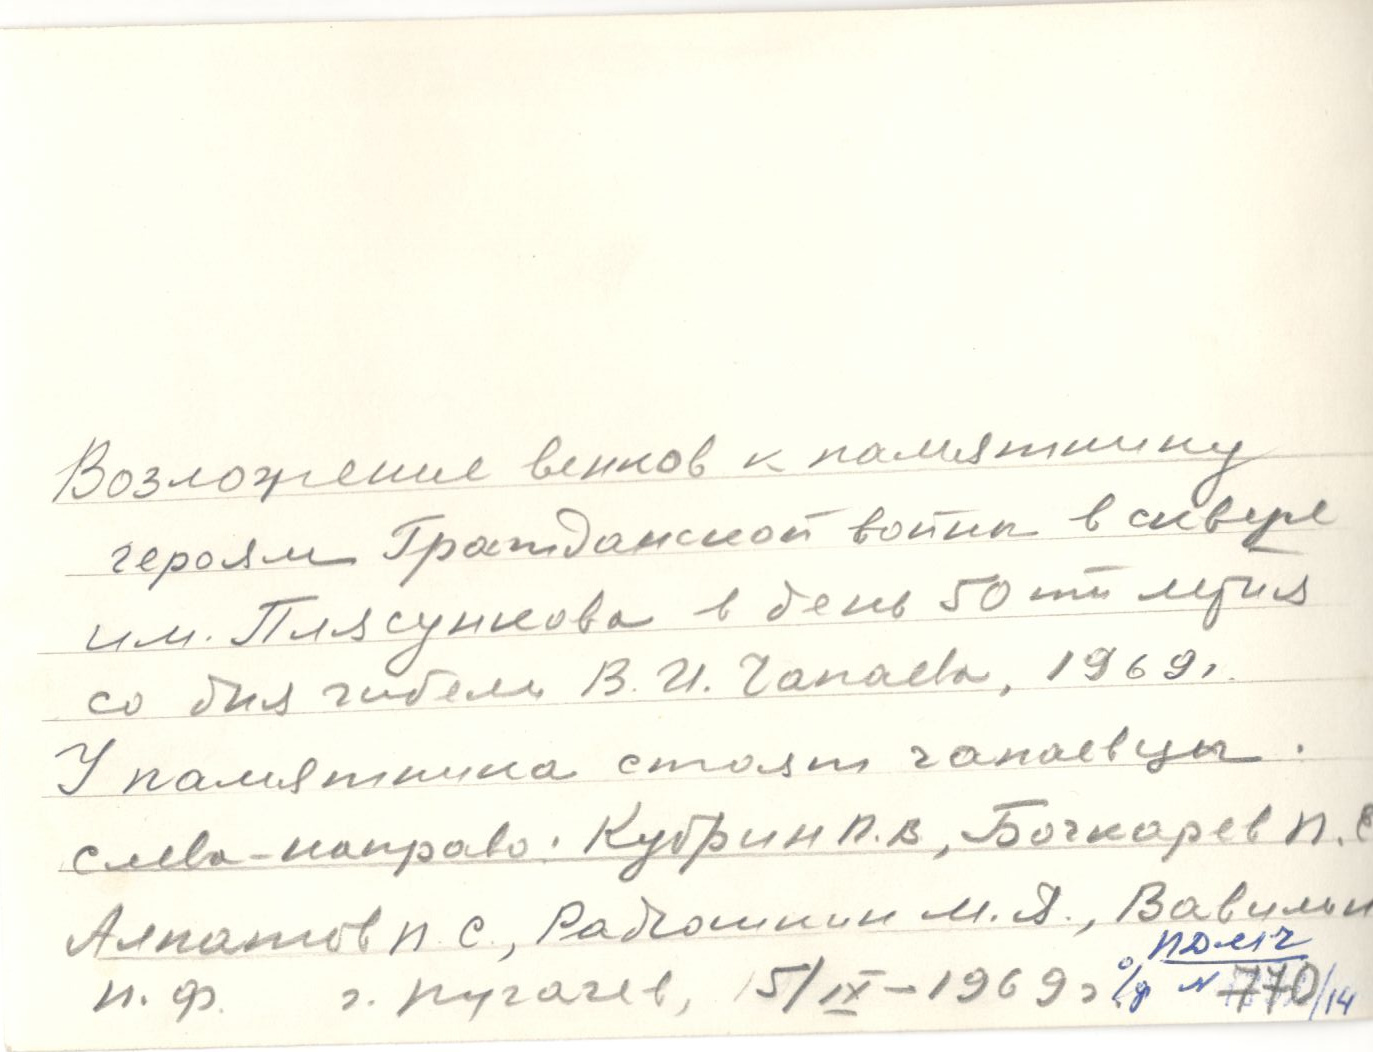 Возложение венков к памятнику
героям Гражданской войны в сквере
им. Плясункова в день 50ти летия
со дня гибели В. И. Чапаева, 1969г.
У памятника стоят чапаевцы.
слева-направо: Кубрин П.В, Бочкарев П. С
Алпатов П. С., М. Я., Вавилин
П. Ф. г. Пугачев, 5/IX-1969г
ПДМЧ
о/ф № 770/14